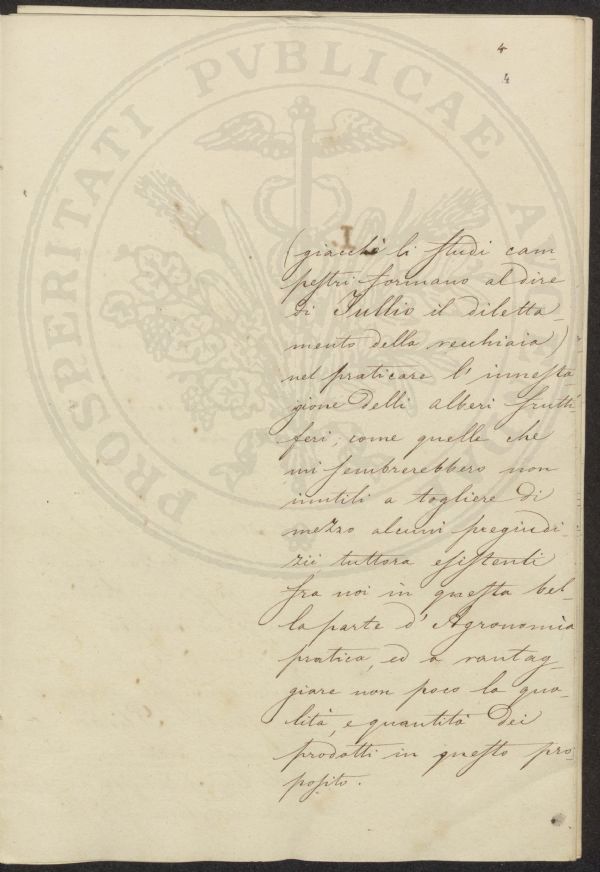 4
4
PROSPERITATI PVBLICAE AVGENDAE
(giacchè li studi cam-
pestri formano al dire
di Tullio il diletta-
mento della vecchiaia)
nel praticare l'innesta-
gione delli alberi frutti
feri, come quelle che
mi sembrerebbero non
inutili a togliere di
mezzo alcuni pregiudi-
zii tuttora esistenti
fra noi in questa bel-
la parte d'Agronomia
pratica, ed a vantag-
giare non poco la qua-
lità, e quantità dei
prodotti in questo pro-
posito.